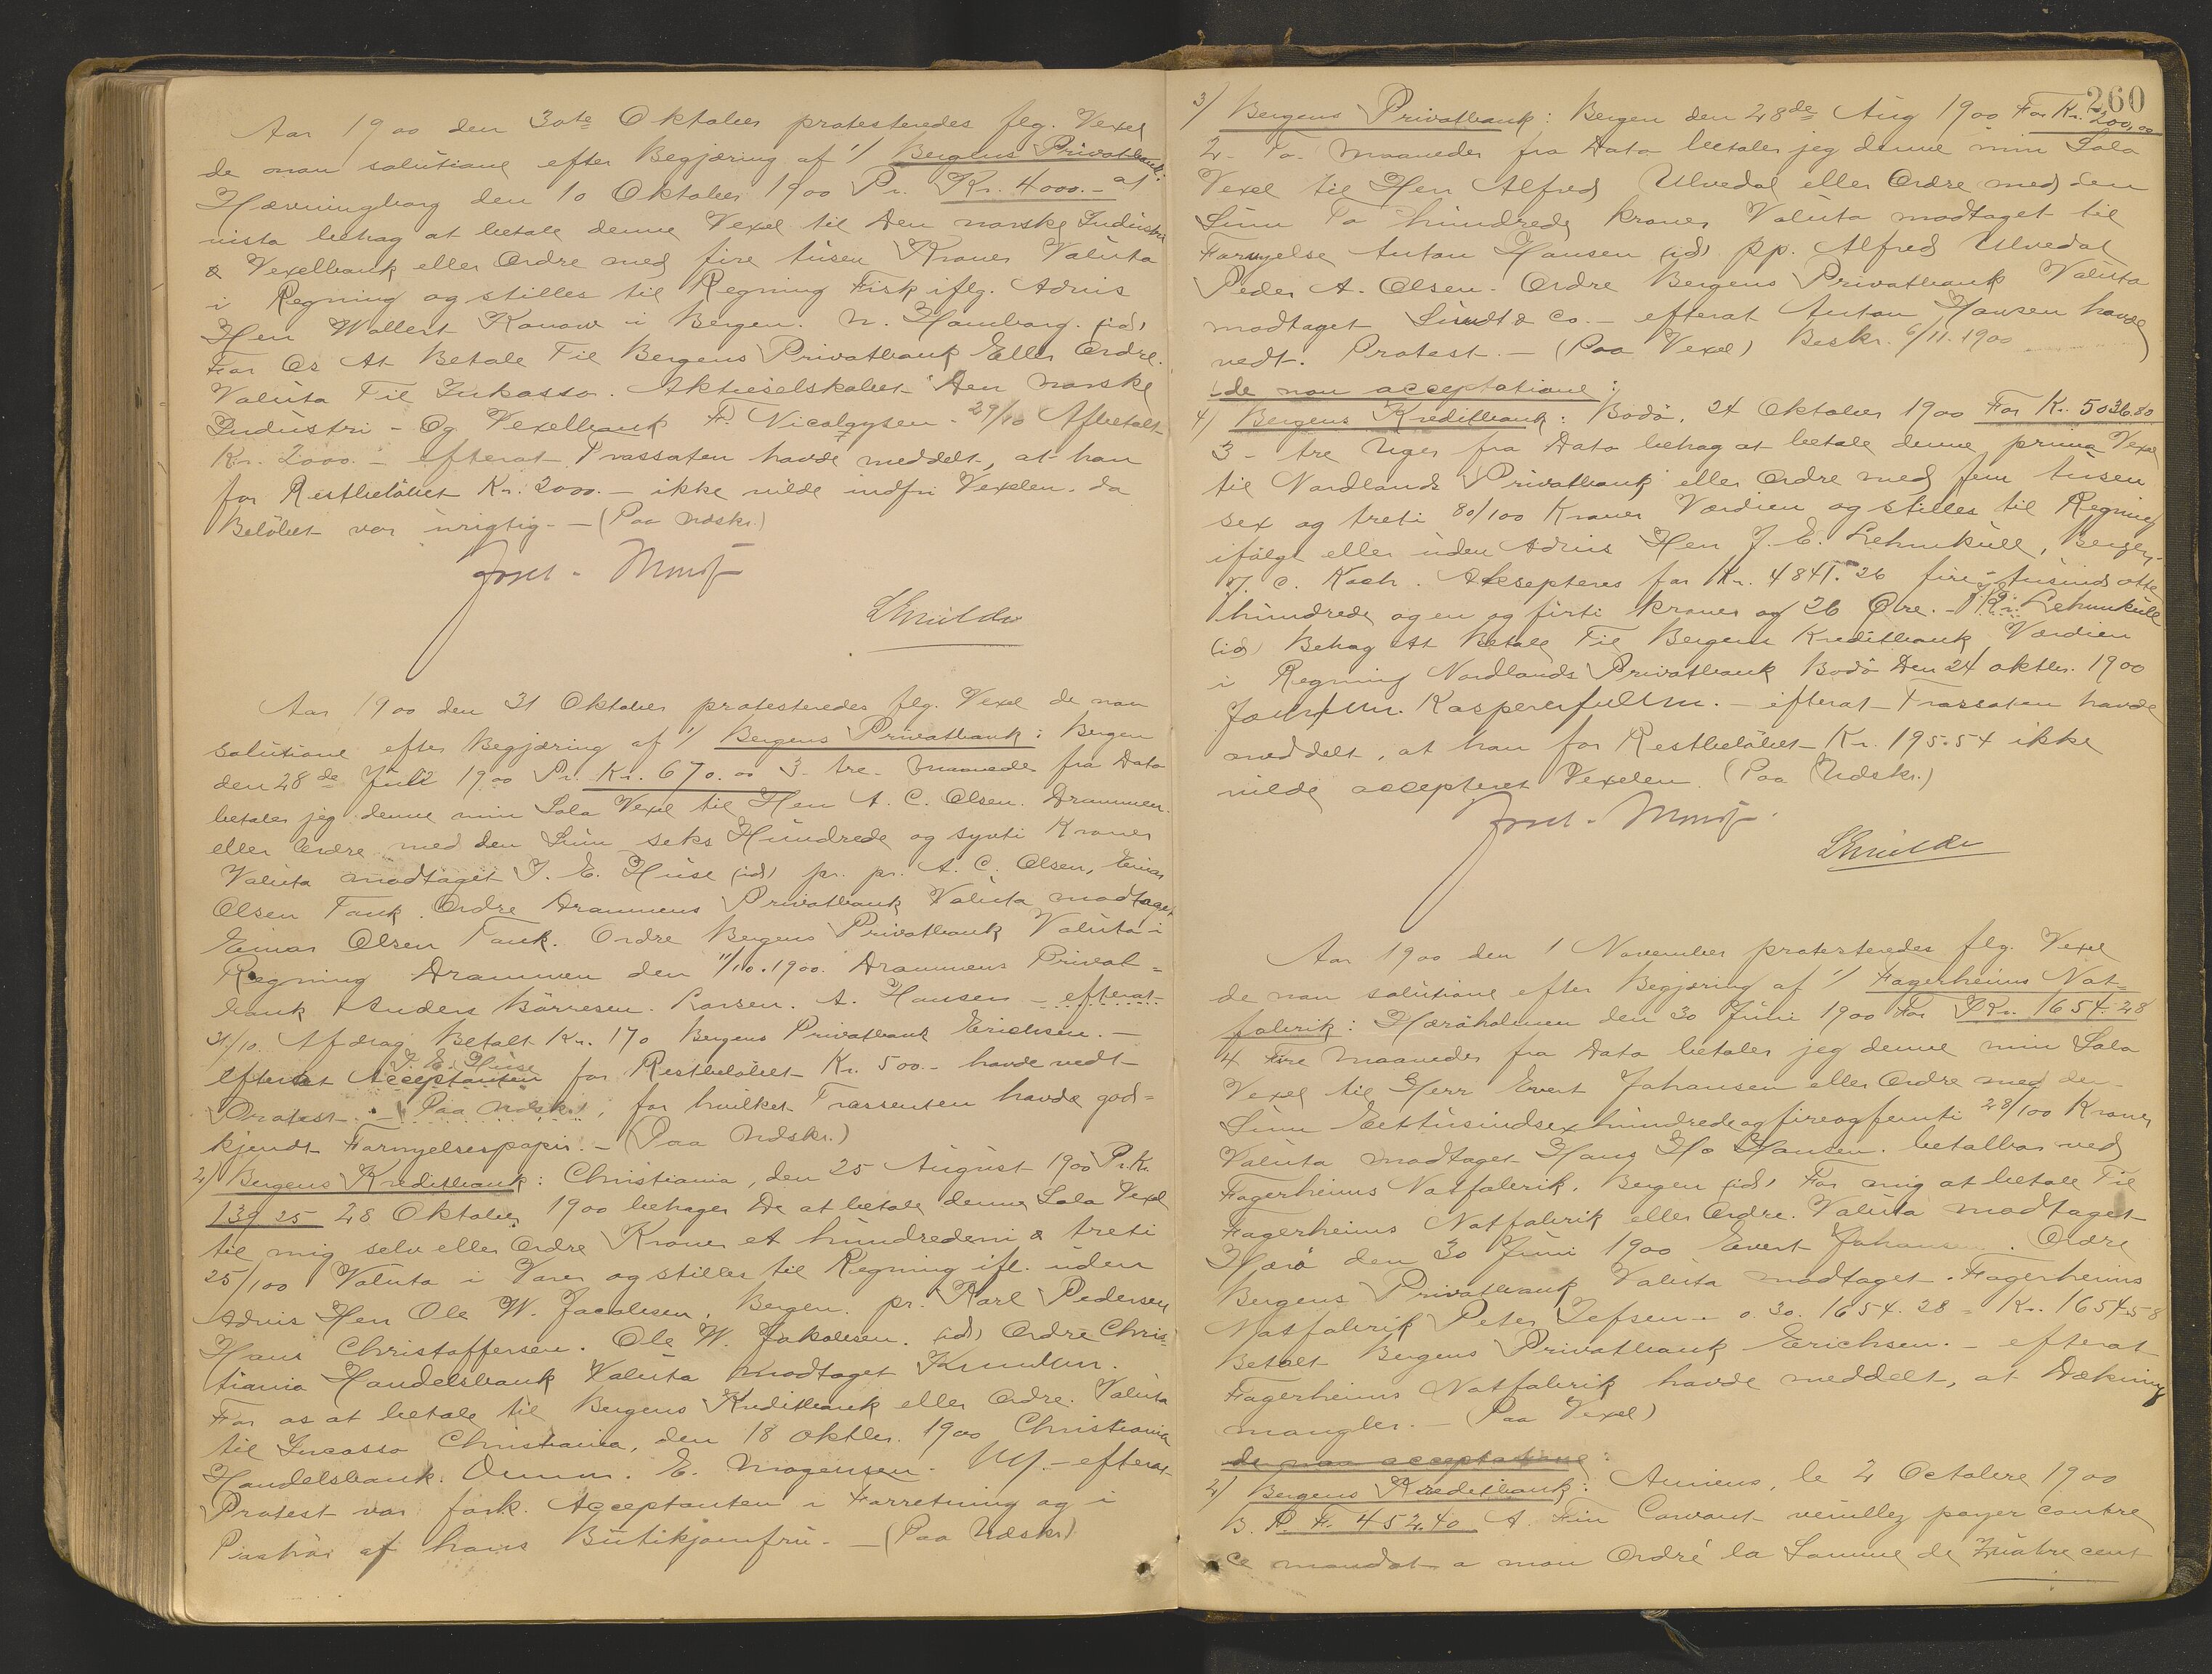 Aar 1900 den 30te Oktober protesteredes flg. Vexel
de non solutione efter Begjæring af 1/ Bergens Privatbank:
Hævningberg den 10 Oktober 1900 Pr. Kr. 4000.- a1
vista behag at betale denne Vexel til Den norske Industri
& Vexelbank eller Ordre med fire tusen Kroner Valuta
i Regning og stilles til Regning Fisk iflg. Advis
Herr Wollert Konow i Bergen. N. Homborg. (id)
For Os At Betale Til Bergens Privatbank Eller Ordre.
Valuta Til Inkasso. Aktieselskabet Den norske
Industri- Og Vexelbank F. Nicolaysen. 29/10 Afbetalt
Kr. 2000.- efterat Trassaten havde meddelt, at han
for Restbeløbet Kr. 2000.- ikke vilde indfri Vexelen, da
Beløbet var urigtig. - (Paa Udskr.)
Aar 1900 den 31 Oktober protesteredes flg. Vexel de non
solutione efter Begjæring af 1/ Bergens Privatbank: Bergen
den 28de Juli 1900 Pr. Kr. 670.00 3- tre- Maaneder fra Dato
betaler jeg denne min Sola Vexel til Herr A. C. Olsen. Drammen
eller Ordre med den Sum seks Hundrede og sytti Kroner
Valuta modtaget J. E. Huse (id) pr. pr. A. C. Olsen, Einar
Olsen Tank. Ordre Drammens Privatbank Valuta modtaget
Einar Olsen Tank. Ordre Bergens Privatbank Valuta i
Regning Drammen den 11/10.1900. Drammens Privat=
bank Anders Børresen. Larsen. A. Hansen - efterat
31/10. Afdrag Betalt Kr. 170 Bergens Privatbank Erichsen. -
J. E. Huse
efterat Acceptanten for Restbeløbet Kr. 500.- havde vedt-
Protest. - (Paa Udskr.), for hvilket Trassenten havde god=
kjendt Fornyelsespapir. - (Paa Udskr.)
2/ Bergens Kreditbank: Christiania, den 25 August 1900 Pr. Kr.
139 25 28 Oktober 1900 behager De at betale denne Sola Vexel
til mig selv eller Ordre Kroner et hundredeni & treti
25/100 Valuta i Varer og stilles til Regning ifl. uden
Advis Herr Ole W. Jacobsen, Bergen. pr. Karl Pedersen
Hans Christoffersen. Ole W. Jakobsen. (id) Ordre Chris-
tiania Handelsbank Valuta modtaget
For os at betale til Bergens Kreditbank eller Ordre. Valuta
til Incasso Christiania, den 18 oktbr. 1900 Christiania
Handelsbank. E. Mogensen. - efterat
Protest var fork. Acceptanten i Forretning og i
Paahør af hans Butikjomfru. - (Paa Udskr.)
260
3/ Bergens Privatbank: Bergen den 28de Aug 1900 For Kr. 200,00
2- To- maaneder fra Dato betaler jeg denne min Sola
Vexel til Herr Alfred Ulvedal eller Ordre med den
Sum To hundrede kroner Valuta modtaget til
Fornyelse Anton Hansen (id) pp. Alfred Ulvedal
Peder A. Olsen. Ordre Bergens Privatbank Valuta
modtaget Sundt & Co. - efterat Anton Hansen havde
vedt. Protest. - (Paa Vexel) Beskr. 6/11.1900
(de non acceptatione:
4/ Bergens Kreditbank: Bodö, 24 Oktober 1900 For Kr. 5036.80
3- tre Uger fra Dato behag at betale denne prima Vexel
til Nordlands Privatbank eller Ordre med fem tusen
sex og treti 80/100 Kroner Værdien og stilles til Regning
ifølge eller uden Advis Herr J. E. Lehmkuhl, Bergen,
J. C. Koch. Aksepteres for Kr. 4841.26 fire tusinds otte
hundrede og en og firti kroner og 26 Øre. - Lehmkuhl
(id) Behag At Betale Til Bergens Kreditbank Værdien
i Regning Nordlands Privatbank Bodö Den 24 oktbr. 1900
- efterat Trassaten havde
meddelt, at han for Restbeløbet Kr. 195.54 ikke
vilde accepteret Vexelen. (Paa Udskr.)
Aar 1900 den 1 November protesteredes flg. Vexel
de non solutione efter Begjæring af 1/ Fagerheims Not=
fabrik: Harøholmen den 30 Juni 1900 For Kr. 1654.28
4 Fire Maaneder fra Dato betaler jeg denne min Sola
Vexel til Herr Evert Johansen eller Ordre med den
Sum Eettusindsexhundredeogfireogfemti 28/100 Kroner
Valuta modtaget Hans Ho Hansen. betalbar ved
Fagerheims Notfabrik, Bergen (id) For mig at betale Til
Fagerheims Notfabrik eller Ordre. Valuta modtaget
Harø den 30 Juni 1900 Evert Johansen. Ordre
Bergens Privatbank Valuta modtaget. Fagerheims
Notfabrik Peter Jefsen. - 0.30. 1654.28 = Kr. 1654.58
Betalt Bergens Privatbank Erichsen. - efterat
Fagerheims Notfabrik havde meddelt, at Dækning
mangler. - (Paa Vexel)
de non acceptatione:
2/ Bergens Kreditbank: Amiens, le 2 Octobre 1900
B. P. F. 452.40 A. Fin Courant veuillez payer contre
ce mandat a mon Ordré la Somme de Quatre cent